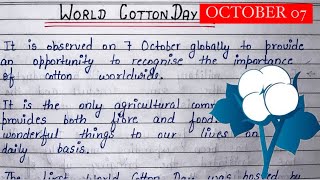 WORLD COTTON DAY OCTOBER 07
It is observed on 7 October globally to provide
an opportunity to recognise the importance
of cotton worldwide.
It is the only agricultural com
provides both fibre and food
wonderful things to our lives on
daily basis.
The first World Cotton Day was hosted by